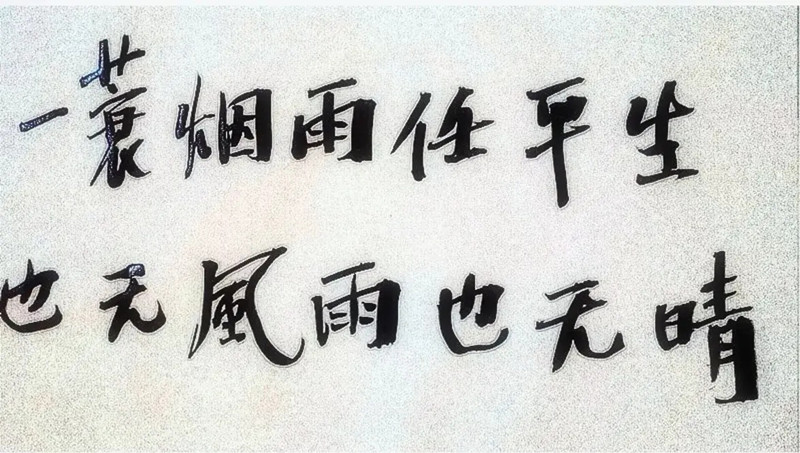 一蓑烟雨任平生
也无風雨也无晴